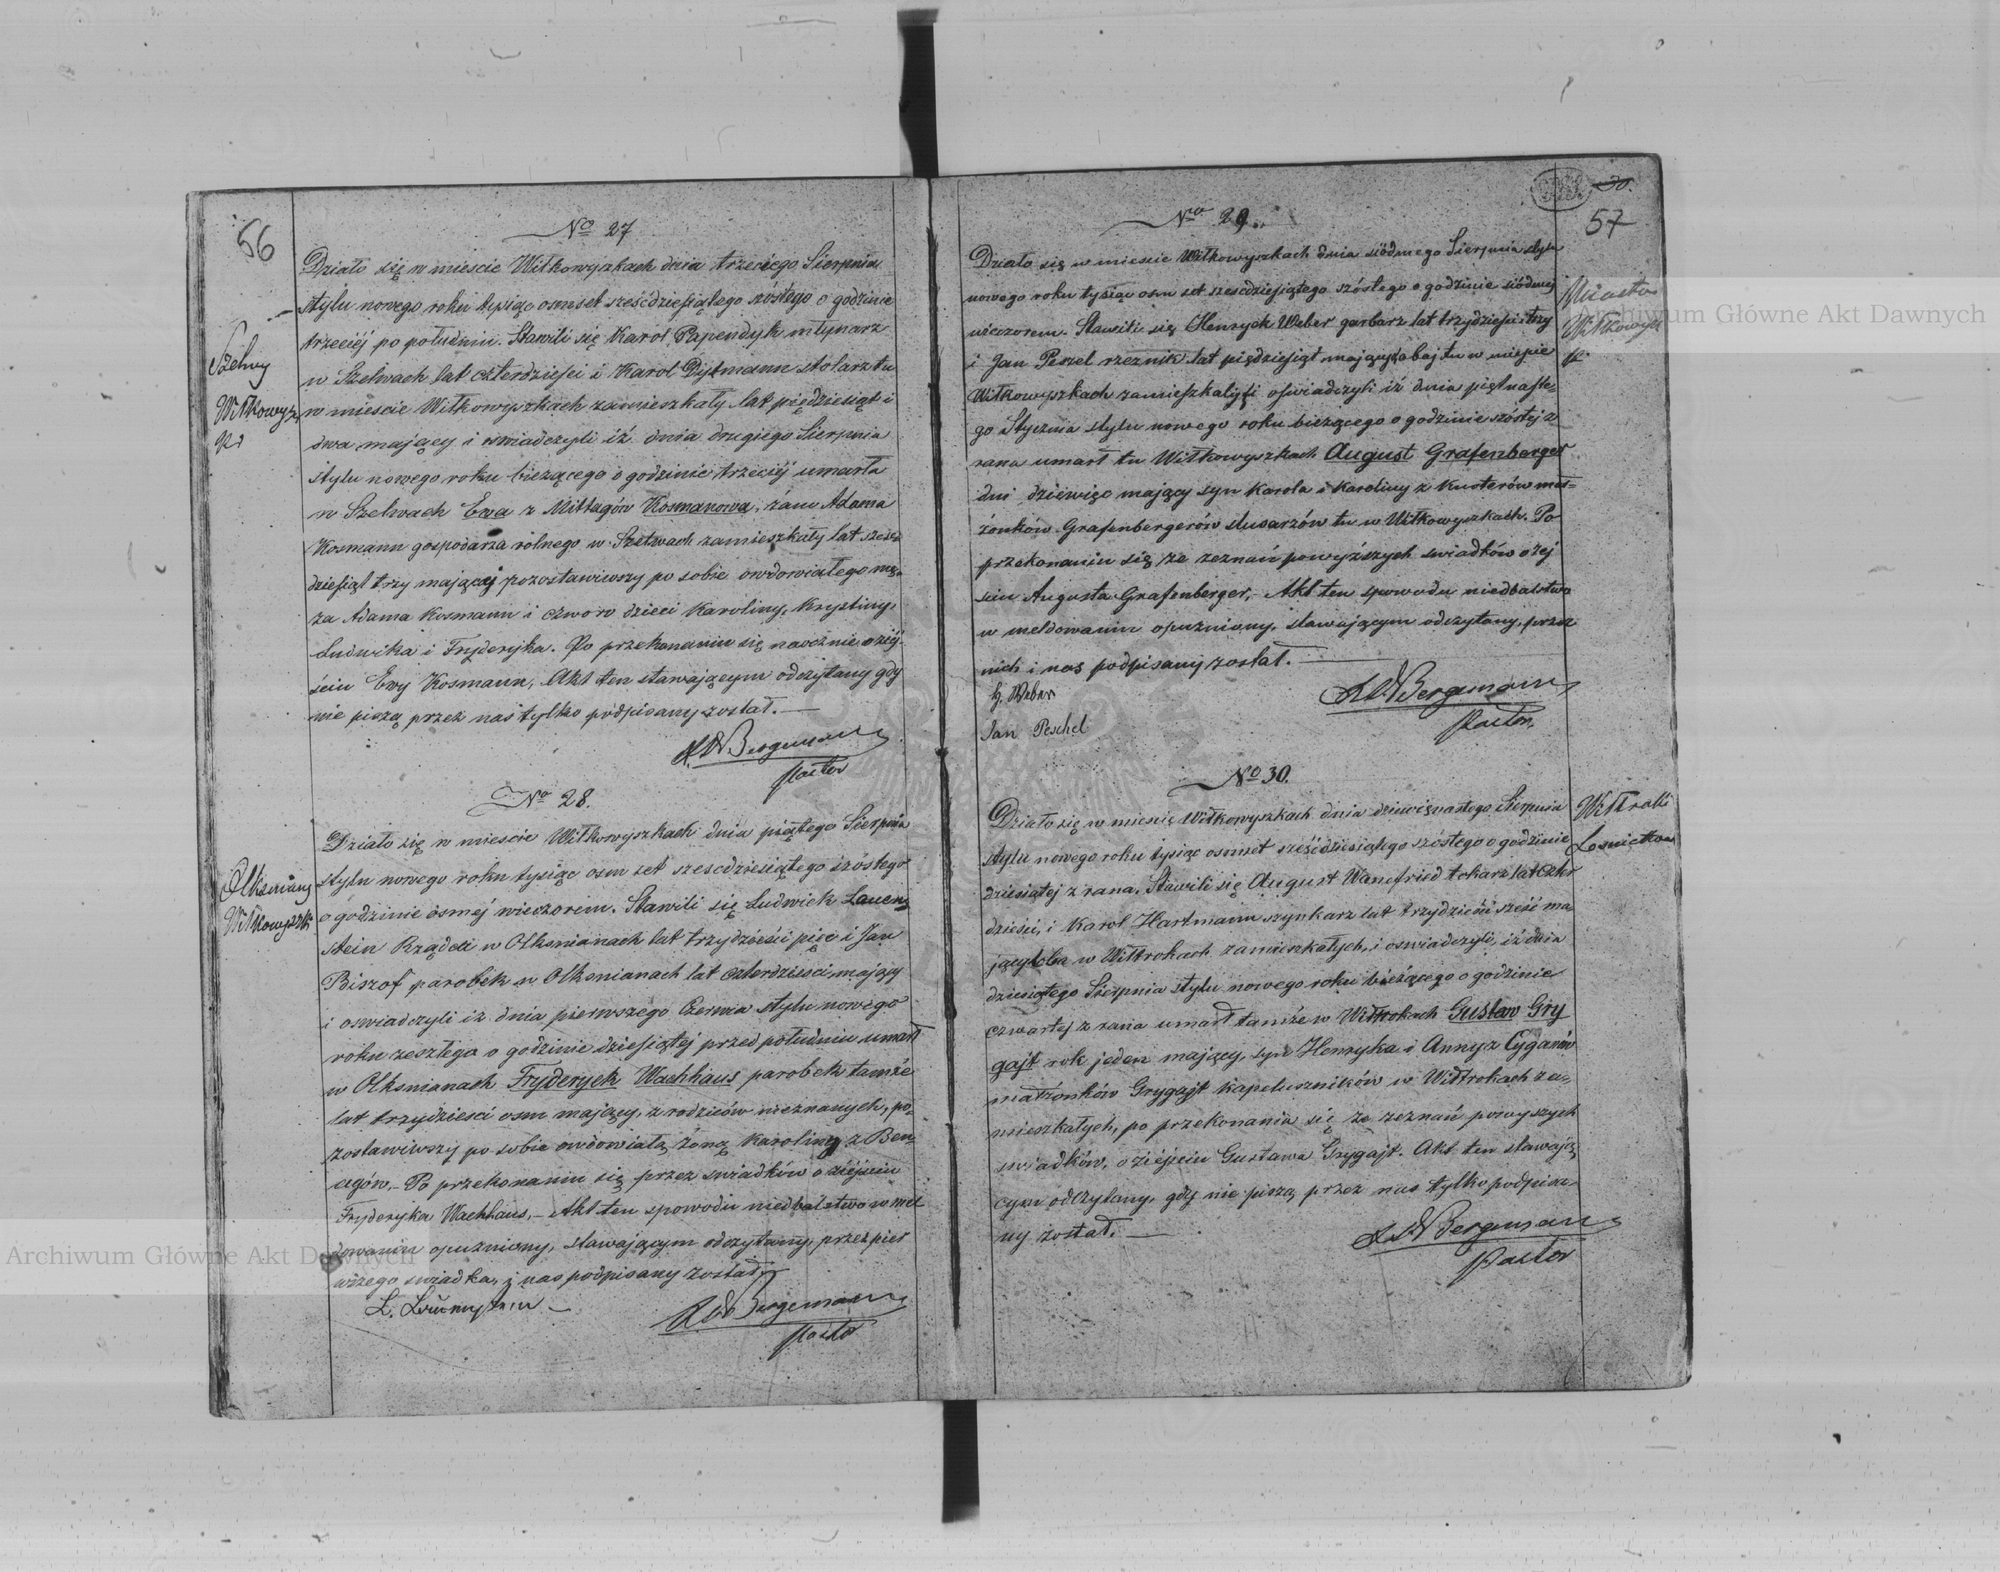 56
No 27
Szelwy
Witkowysz
ki
Działo się w mieście Wiłkowyszkach dnia trzeciego Sierpnia
stylu nowego roku tysiąc osmset sześćdziesiątego szóstego o godzinie
trzeciéj po południu. Stawili się Karol Papendyk młynarz
w Szelwach lat czterdzieści i Karol Dytmann stolarz tu
w mieście Wiłkowyszkach zamieszkały lat pięćdziesiąt i
dwa mający i oswiadczyli iż dnia drugiego Sierpnia
stylu nowego roku bieżącego o godzinie trzeciéj umarła
w Szelwach Ewa z Mittagów Kosmanowa, żona Adama
Kosmann gospodarza rolnego w Szelwach zamieszkały lat sześć
dziesiąt trzy mającéj pozostawiwszy po sobie owdowiałego mę-
ża Adama Kosmann i czworo dzieci Karoliny, Krystiny,
Ludwika i Fryderyka. Po przekonaniu się naocznie o zéj-
ściu Ewy Kosmann, Akt ten stawającym odczytany gdy
nie piszą przez nas tylko podpisany został.
Bergemann
Pastor
No 28.
Olksniany
Wiłkowyszki
Działo się w mieście Wiłkowyszkach dnia piątego Sierpnia
stylu nowego roku tysiąc osm set szescdziesiątego szóstego
o godzinie ósméj wieczorem. Stawili się Ludwick Lauen
stein Rządca w Olksnianach lat trzydzieści pięć i Jan
Biszof parobek w Olksnianach lat czterdziesci mający
i oswiadczyli iż dnia pierwszego Czerwca stylu nowego
roku zeszłego o godzinie dziesiątéj przed południu umarł
w Olksnianach Fryderyck Wachhaus parobek tamże
lat trzydziesci osm mający, z rodziców nieznanych, po-
zostawiwszy po sobie owdowiałą żonę Karolinę z Ben
cegów, Po przekonaniu się przez swiadków o zéjściu
Fryderyka Wachhaus, Akt ten spowodu niedbalstwa w mel
dowaniu opuźniony, stawającym odczytany, przez pier
wszego swiadka, i nas podpisany został
L. Lauenstein
Bergemann
Pastor
30.
57
No 29.
Miasto
Wiłkowysz
Działo się w miescie Wiłkowyszkach dnia siódmego Sierpnia stylu
nowego roku tysiąc osm set szescdziesiątego szóstego o godzinie siódméj
wieczorem. Stawili się Henryck Weber garbarz lat trzydzieści trzy
i Jan Peszel rzeznik lat pięćdziesiąt mający obaj tu w miescie
Wiłkowyszkach zamieszkali, i oświadczyli iż dnia piętnaste-
go Stycznia stylu nowego roku bieżącego o godzinie szóstéj z
rana umarł tu w Wiłkowyszkach August Grafenberger
dni dziewięć mający syn Karola i Karoliny z Kusterów mał-
żonków Grafenbergerów slusarzów tu w Wiłkowyszkach. Po
przekonaniu się ze zeznań powyższych swiadków o zéj
sciu Augusta Grafenberger, Akt ten spowodu niedbalstwa
w meldowaniu opuźniony, stawającym odczytany, przez
nich i nas podpisany został.
H. Weber
Jan Peschel
Bergemann
Pastor.
No 30.
Witkrali
Działo się w miescie Wiłkowyszkach dnia dziewiętnastego Sierpnia
stylu nowego roku tysiąc osmset sześćdziesiątego szóstego o godzinie
dziesiątéj z rana. Stawili się August Wanefried tokarz lat czter
dzieści, i Karol Hartmann szynkarz lat trzydzieści sześć ma
jący oba w Wiłtrokach zamieszkałych, i oswiadczyli, iż dnia
dziesiątego Sierpnia stylu nowego roku bieżącego o godzinie
czwartéj z rana umarł tamże w Wiłtrokach Gustaw Gry
gajt rok jeden mający, syn Henryka i Anny z Cyganów
małżonków Grygajt kapeluszników w Wiłtrokach za-
mieszkałych, po przekonania się ze zeznań powyższych
swiadków, o zéjściu Gustawa Grygajt. Akt ten stawają
cym odczytany, gdy nie piszą przez nas tylko podpisa-
ny został.
Bergemann
Pastor
Archiwum Główne Akt Dawnych
Archiwum Główne Akt Dawnych